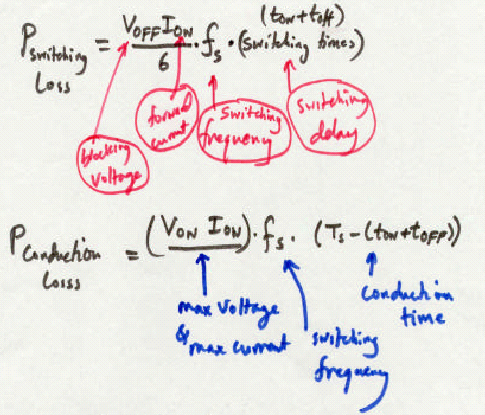 (tow+toff)
P switching Loss = V_OFF I_ON / 6 · f_s · (Switching times)
blocking voltage
forward current
switching frequency
switching delay
P Conduction Losss = (V_ON I_ON) · f_s · (T_s - (tow+tOFF))
max voltage
& max current
switching
frequency
Conduction
time